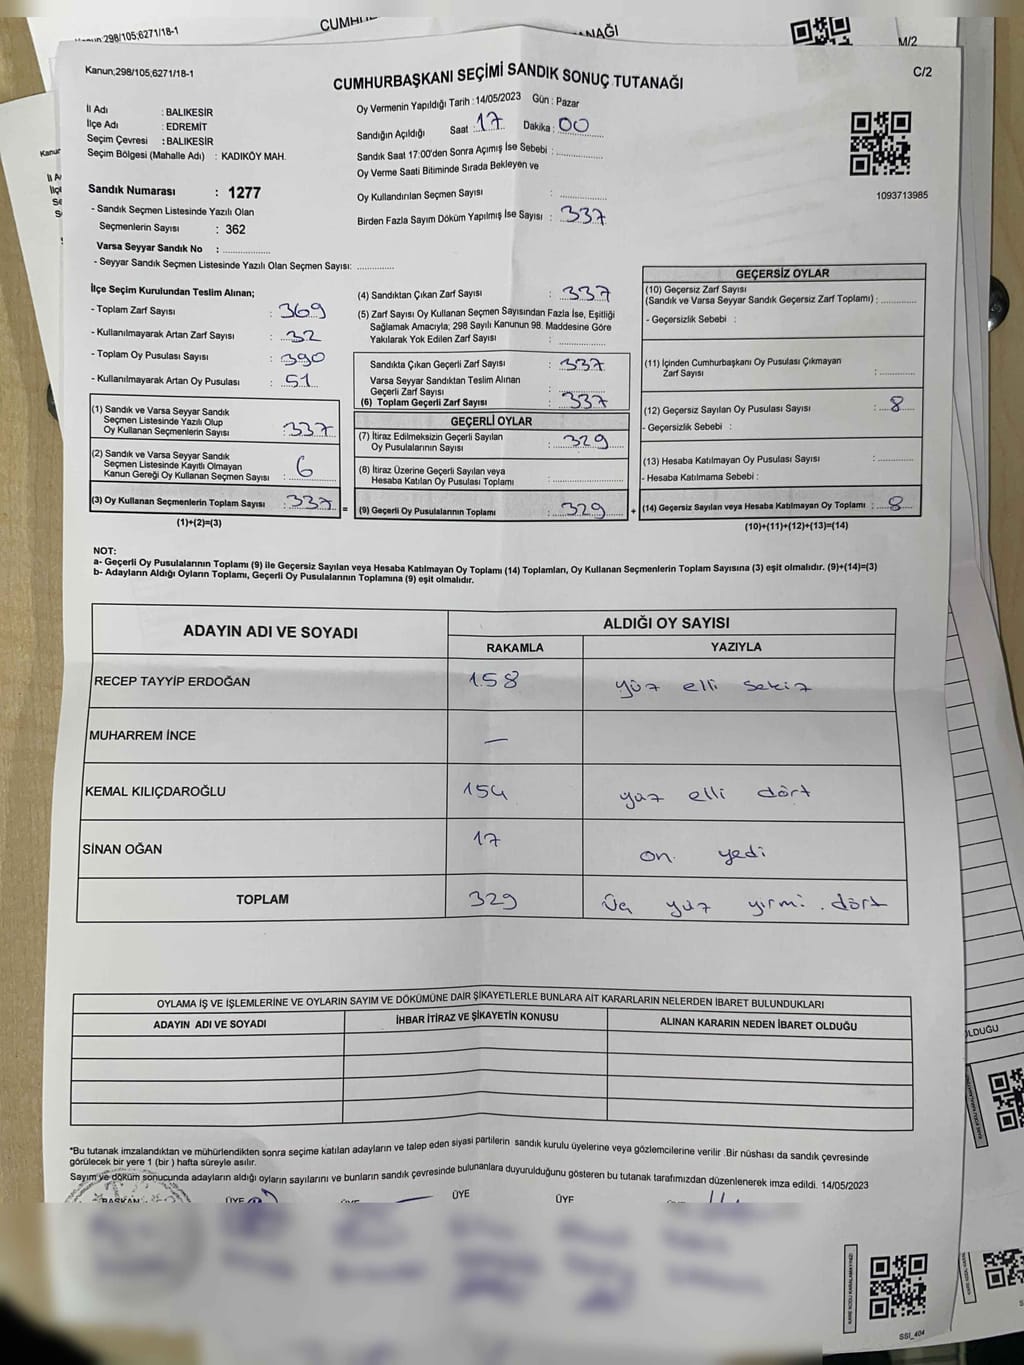 Kanun;298/105;6271/18-1
CUMHU
NAĞI
M/2
Kanun;298/105;6271/18-1
C/2
CUMHURBAŞKANI SEÇİMİ SANDIK SONUÇ TUTANAĞI
İl Adı : BALIKESİR
İlçe Adı : EDREMİT
Seçim Çevresi : BALIKESİR
Seçim Bölgesi (Mahalle Adı) : KADIKÖY MAH.
Oy Vermenin Yapıldığı Tarih : 14/05/2023 Gün : Pazar
Sandığın Açıldığı Saat : 17 Dakika : 00
Sandık Saat 17:00'den Sonra Açımış İse Sebebi :
Oy Verme Saati Bitiminde Sırada Bekleyen ve
Oy Kullandırılan Seçmen Sayısı :
Birden Fazla Sayım Döküm Yapılmış İse Sayısı : 337
1093713985
Sandık Numarası : 1277
- Sandık Seçmen Listesinde Yazılı Olan
Seçmenlerin Sayısı : 362
Varsa Seyyar Sandık No :
- Seyyar Sandık Seçmen Listesinde Yazılı Olan Seçmen Sayısı:
İlçe Seçim Kurulundan Teslim Alınan;
- Toplam Zarf Sayısı : 369
- Kullanılmayarak Artan Zarf Sayısı : 32
- Toplam Oy Pusulası Sayısı : 390
- Kullanılmayarak Artan Oy Pusulası : 51
(1) Sandık ve Varsa Seyyar Sandık
Seçmen Listesinde Yazılı Olup
Oy Kullanan Seçmenlerin Sayısı : 337
(2) Sandık ve Varsa Seyyar Sandık
Seçmen Listesinde Kayıtlı Olmayan
Kanun Gereği Oy Kullanan Seçmen Sayısı : 6
(3) Oy Kullanan Seçmenlerin Toplam Sayısı : 337 =
(1)+(2)=(3)
(4) Sandıktan Çıkan Zarf Sayısı : 337
(5) Zarf Sayısı Oy Kullanan Seçmen Sayısından Fazla İse, Eşitliği
Sağlamak Amacıyla; 298 Sayılı Kanunun 98. Maddesine Göre
Yakılarak Yok Edilen Zarf Sayısı :
Sandıkta Çıkan Geçerli Zarf Sayısı : 337
Varsa Seyyar Sandıktan Teslim Alınan
Geçerli Zarf Sayısı :
(6) Toplam Geçerli Zarf Sayısı : 337
GEÇERLİ OYLAR
(7) İtiraz Edilmeksizin Geçerli Sayılan
Oy Pusulalarının Sayısı : 329
(8) İtiraz Üzerine Geçerli Sayılan veya
Hesaba Katılan Oy Pusulası Toplamı :
(9) Geçerli Oy Pusulalarının Toplamı : 329 +
GEÇERSİZ OYLAR
(10) Geçersiz Zarf Sayısı
(Sandık ve Varsa Seyyar Sandık Geçersiz Zarf Toplamı) :
- Geçersizlik Sebebi :
(11) İçinden Cumhurbaşkanı Oy Pusulası Çıkmayan
Zarf Sayısı :
(12) Geçersiz Sayılan Oy Pusulası Sayısı : 8
- Geçersizlik Sebebi :
(13) Hesaba Katılmayan Oy Pusulası Sayısı :
- Hesaba Katılmama Sebebi :
(14) Geçersiz Sayılan veya Hesaba Katılmayan Oy Toplamı : 8
(10)+(11)+(12)+(13)=(14)
NOT:
a- Geçerli Oy Pusulalarının Toplamı (9) ile Geçersiz Sayılan veya Hesaba Katılmayan Oy Toplamı (14) Toplamları, Oy Kullanan Seçmenlerin Toplam Sayısına (3) eşit olmalıdır. (9)+(14)=(3)
b- Adayların Aldığı Oyların Toplamı, Geçerli Oy Pusulalarının Toplamına (9) eşit olmalıdır.
ADAYIN ADI VE SOYADI ALDIĞI OY SAYISI
RAKAMLA YAZIYLA
RECEP TAYYİP ERDOĞAN 158 yüz elli sekiz
MUHARREM İNCE —
KEMAL KILIÇDAROĞLU 154 yüz elli dört
SİNAN OĞAN 17 on yedi
TOPLAM 329 üç yüz yirmi dört
OYLAMA İŞ VE İŞLEMLERİNE VE OYLARIN SAYIM VE DÖKÜMÜNE DAİR ŞİKAYETLERLE BUNLARA AİT KARARLARIN NELERDEN İBARET BULUNDUKLARI
ADAYIN ADI VE SOYADI İHBAR İTİRAZ VE ŞİKAYETİN KONUSU ALINAN KARARIN NEDEN İBARET OLDUĞU
OLDUĞU
*Bu tutanak imzalandıktan ve mühürlendikten sonra seçime katılan adayların ve talep eden siyasi partilerin sandık kurulu üyelerine veya gözlemcilerine verilir .Bir nüshası da sandık çevresinde
görülecek bir yere 1 (bir ) hafta süreyle asılır.
Sayım ve döküm sonucunda adayların aldığı oyların sayılarını ve bunların sandık çevresinde bulunanlara duyurulduğunu gösteren bu tutanak tarafımızdan düzenlenerek imza edildi. 14/05/2023
BAŞKAN ÜYE ÜYE ÜYE ÜYE
KARE KODU KARALAMAYINIZ!
SSİ_404